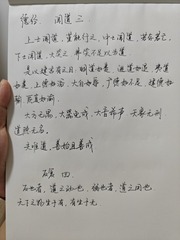 德经 闻道三
上士闻道，堇能行之，中士闻道，若存若亡，
下士闻道，大笑之，弗笑不足以为道。
是以建言有之曰：明道如费，进道如退，夷道
如类，上德如谷，大白如辱，广德如不足，建德如
输，质真如渝。
大方无隅，大器免成，大音希声，天象无刑，
道隐无名。
夫唯道，善始且善成。
石者，道之动也，弱也者，道之用也。
天下之物生于有，有生于无。